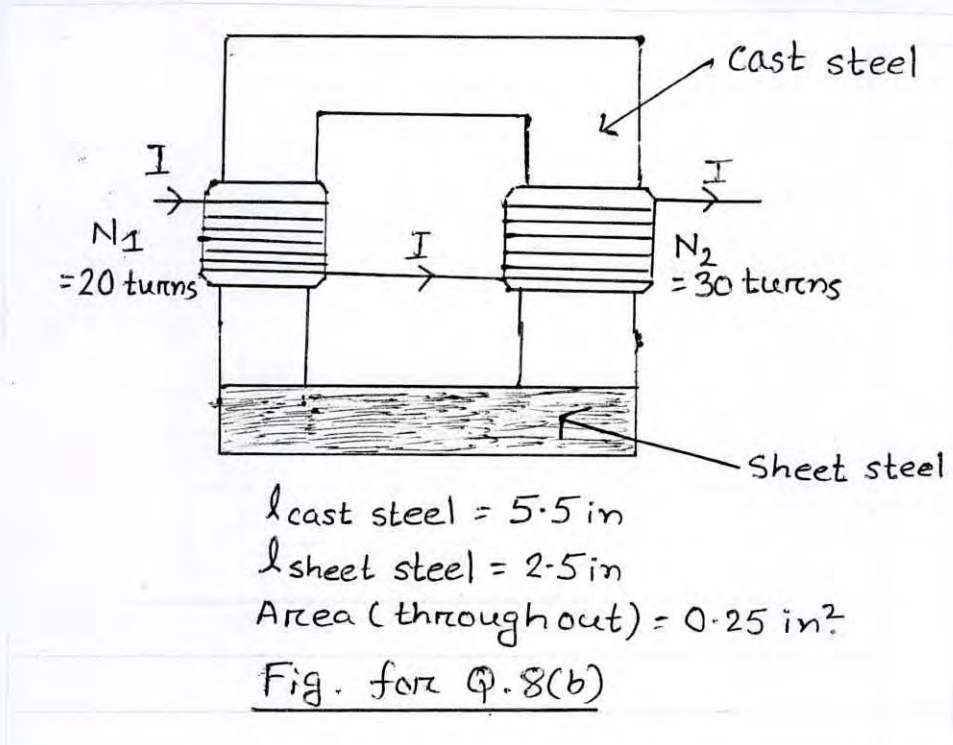 Cast steel
I
I
N1
= 20 turns
I
N2
= 30 turns
Sheet steel
l cast steel = 5.5 in
l sheet steel = 2.5 in
Area (throughout) = 0.25 in²
Fig. for Q.8(b)